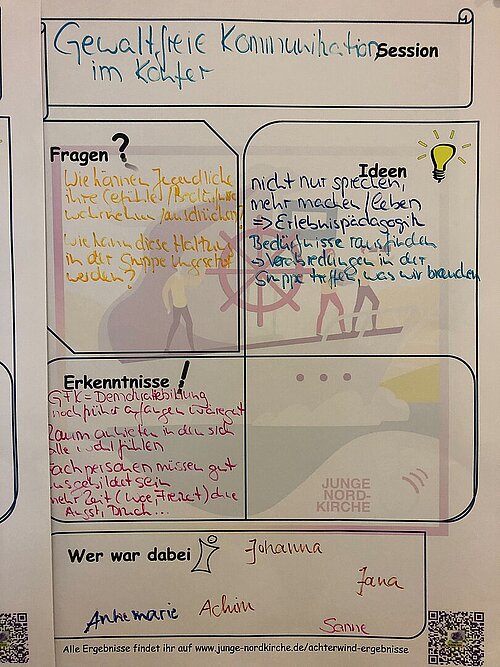 Gewaltfreie Kommunikation
im Konfer
Session
Fragen ?
Wie können Jugendliche
ihre Gefühle/Bedürfnisse
wahrnehmen/ausdrücken?
Wie kann diese Haltung
in der Gruppe umgesetzt
werden?
Ideen
nicht nur sprechen,
mehr machen/leben
=> Erlebnispädagogik
Bedürfnisse rausfinden
-> Verabredungen in der
Gruppe treffen, was wir brauchen
Erkenntnisse !
GFK = Demokratiebildung
noch früher anfangen wäre gut
Raum anbieten in den sich
alle wohlfühlen
Fachpersonen müssen gut
ausgebildet sein
mehr Zeit (wie Freizeit) ohne
Angst, Druck...
JUNGE
NORD-
KIRCHE
Wer war dabei
Johanna
Jana
Annemarie
Achim
Sanne
Alle Ergebnisse findet ihr auf www.junge-nordkirche.de/achterwind-ergebnisse